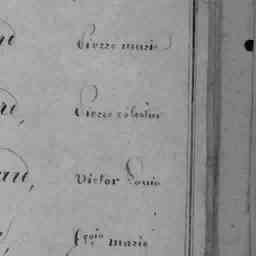 Pierre marie
Pierre célestin
Victor Louis
fçois marie